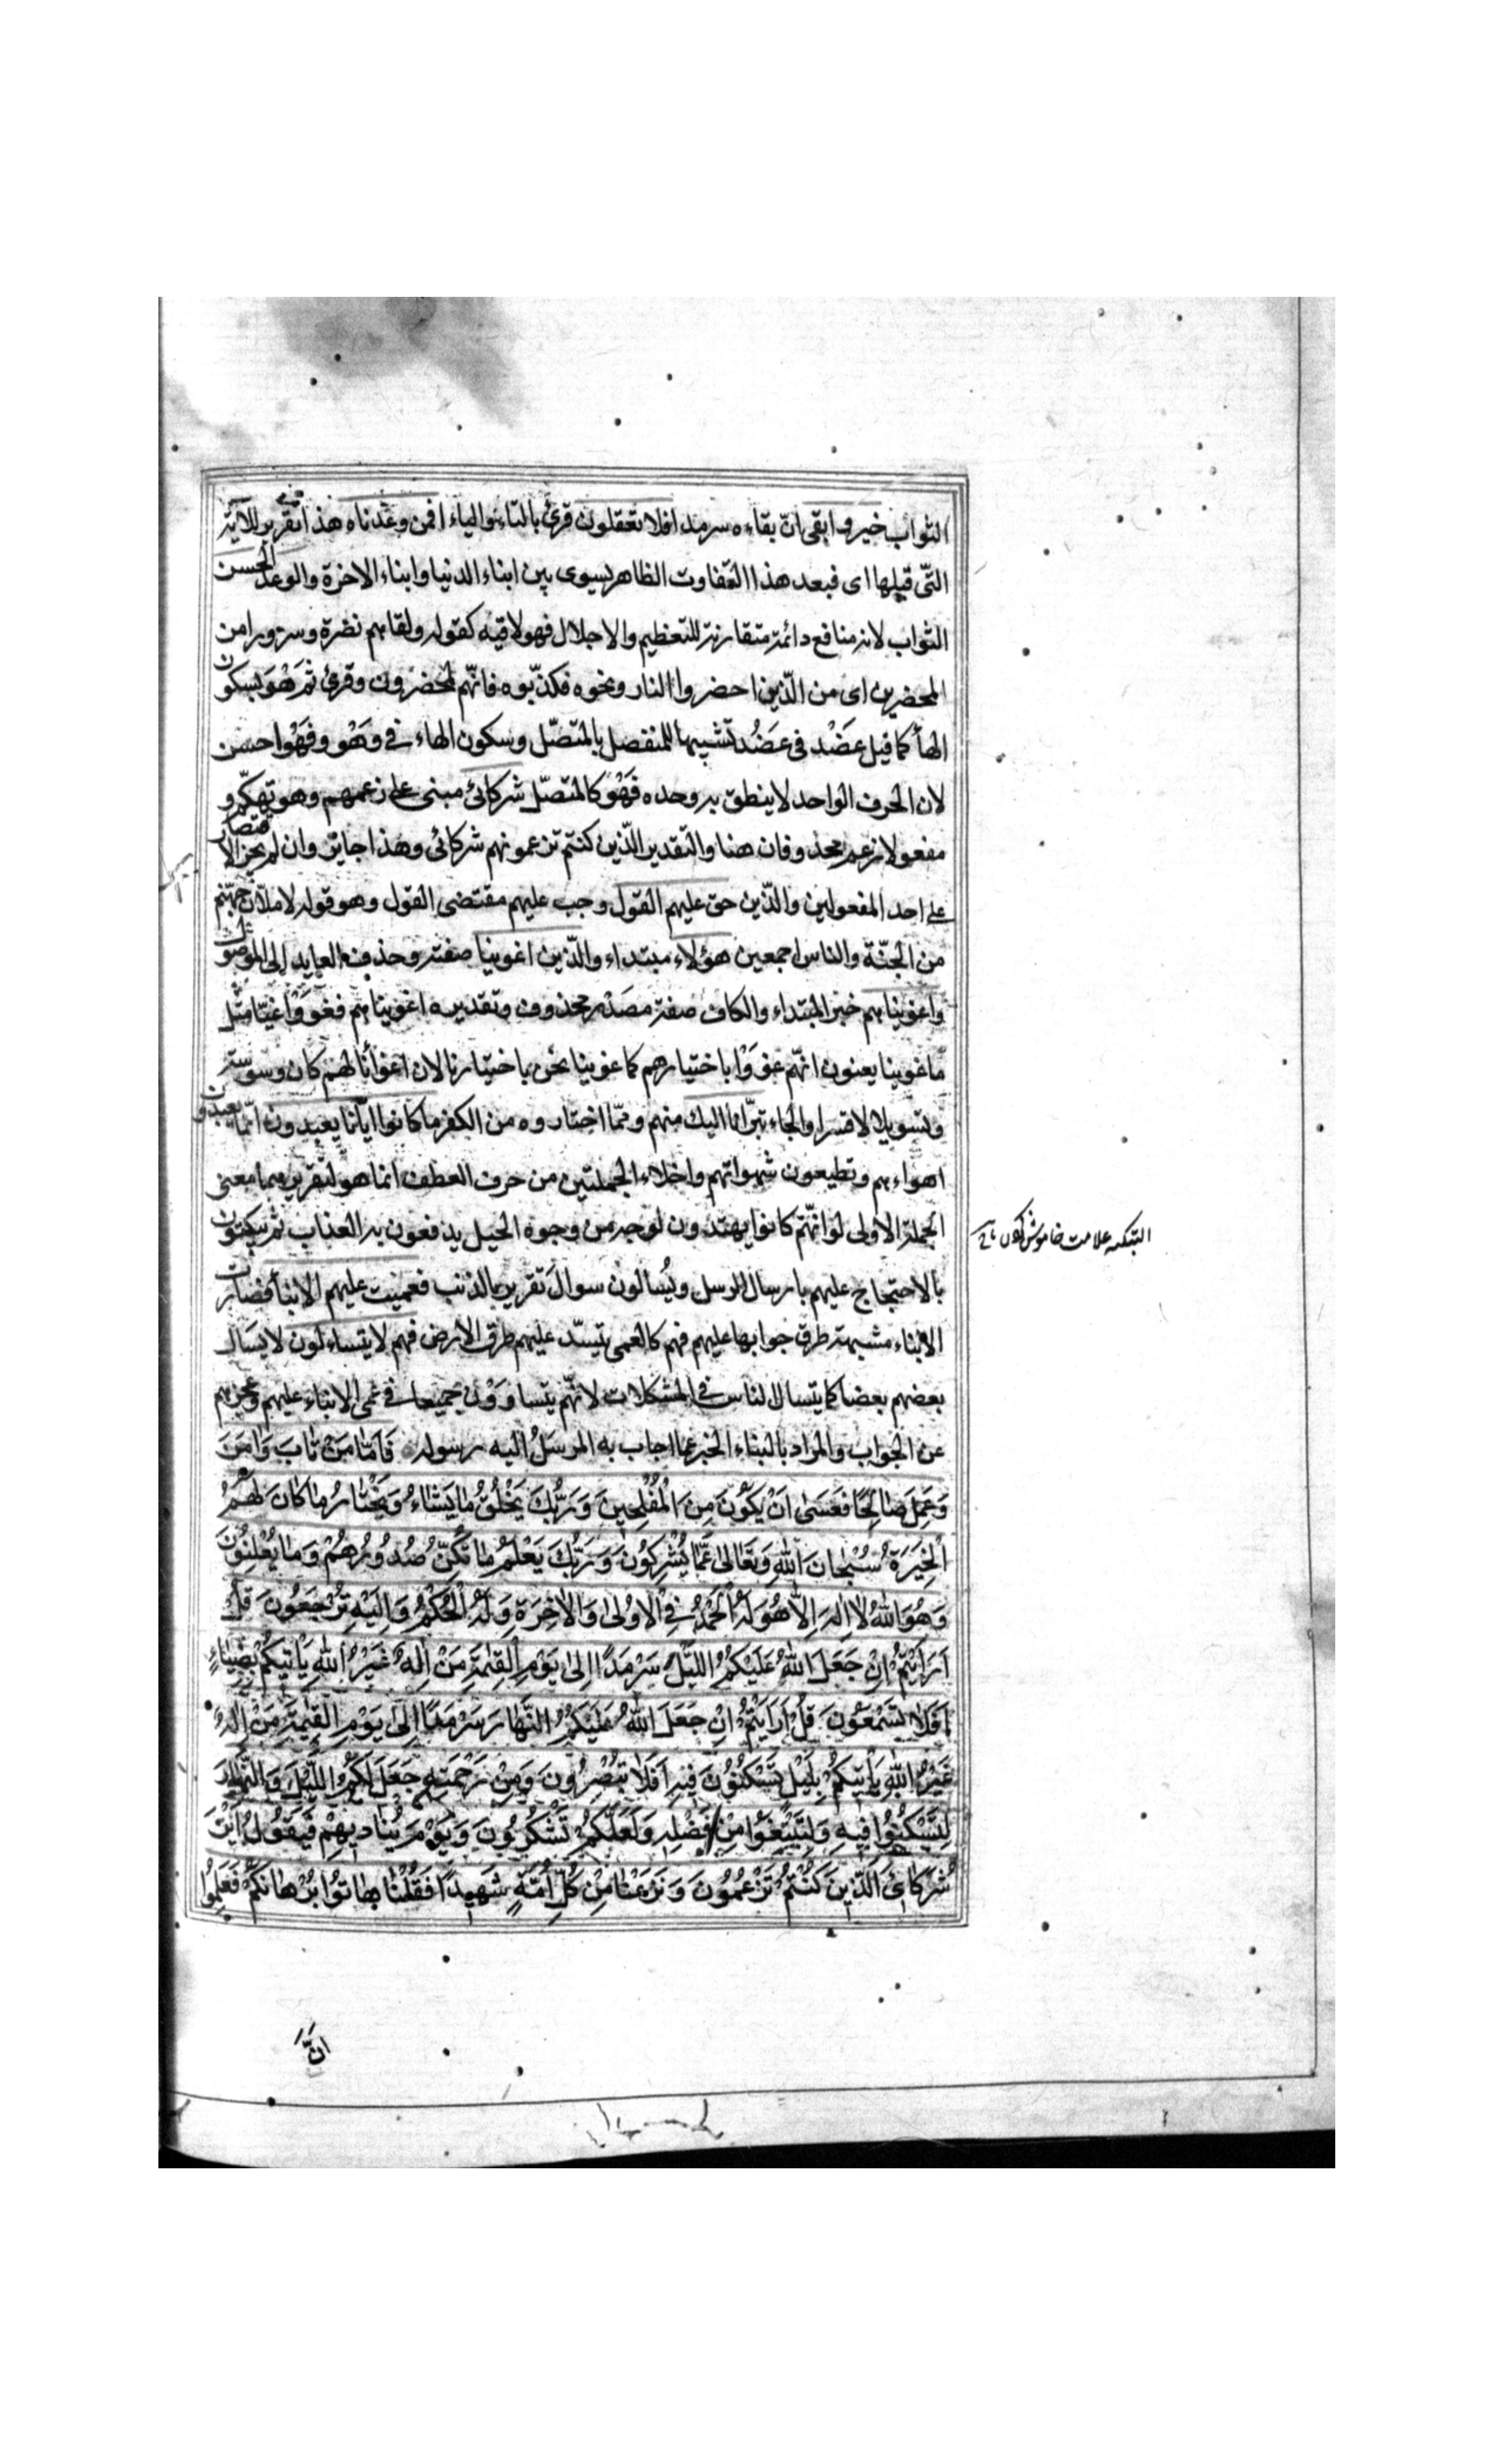 الثواب خير وابقى انّ بقاءه سرمد افلا تعقلون قرئ بالتاء والياء افمن وعدناه هذا تقرير للاية
التّى قبلها اى فبعد هذا التفاوت الظاهر يسوى بين ابناء الدنيا وابناء الاخرة والوعد الحسن
الثواب لانه منافع دائمة متقارنة للتعظيم والاجلال فهو لاقيه كقوله ولقاهم نضرة وسرورا من
المحضرين اى من الّذين احضروا النار ونحوه فكذّبوه فانّهم لمحضرون وقرئ ثم هْو بسكون
الهاء كما قيل عضْد فى عضُد تشبيها للمنفصل بالمتصّل وسكون الهاء في وهْو وفهْو احسن
لان الحرف الواحد لاينطق به وحده فهْو كالمتصّل شركائى مبنى على زعمهم وهو تهكّم و
مفعولا زعم محذوفان هنا والتقدير الّذين كنتم تزعمونهم شركائى وهذا جايز وان لم يجز الاقتصار
على احد المفعولين والّذين حق عليهم القول وجب عليهم مقتضى القول وهو قوله لاملانّ جهنّم
من الجنّة والناس اجمعين هؤلاء مبتداء والّذين اغوينا صفته وحذف العايد الى الموصول
واغويناهم خبر المبتداء والكاف صفة مصدر محذوف وتقديره اغويناهم فغووا غيّا مثل
ما غوينا يعنون انّهم غووا باختيارهم كما غوينا نحن باختيارنا لان اغوأنا لهم كان وسوسة
وتسويلا لا قسرا والجاء تبرّانا اليك منهم وممّا اختاروه من الكفر ما كانوا ايّانا يعبدون انّما يعبدون
اهواءهم وتطيعون شهواتهم واخلاء الجملتين من حرف العطف انما هو لتقريرهما معنى
الجملة الاولى لو انّهم كانوا يهتدون لوجه من وجوه الحيل يدفعون به العذاب ثم يبكتون
بالاحتجاج عليهم بارسال الرسل ويُسالون سوال تقرير بالذنب فعميت عليهم الانبأ فصارت
الانباء مشبهة طرق جوابها عليهم فهم كالعمى يتسدّ عليهم طرق الارض فهم لا يتساءلون لا يسال
بعضهم بعضا كما يتسال الناس في المشكلات لانّهم يتساوون جميعا في عمى الانباء عليهم وعجزهم
عن الجواب والمراد بالنباء الخبر عما اجاب به المرسل اليه رسوله فَاَمّا مَنْ تابَ وَامَنَ
وَعَمِلَ صالِحًا فَعَسى اَنْ يَكُونَ مِنَ الْمُفْلِحينَ وَرَبُّكَ يَخْلُقُ ما يَشاءُ وَيَخْتارُ ما كانَ لَهُمُ
الْخِيَرَةُ سُبْحانَ اللهِ وَتَعالى عَمّا يُشْرِكُونَ وَرَبُّكَ يَعْلَمُ ما تُكِنُّ صُدُورُهُمْ وَما يُعْلِنُونَ
وَهُوَ اللهُ لا اِلهَ اِلاّ هُوَ لَهُ الْحَمْدُ فِي الْاوُلى وَالْاخِرَةِ وَلَهُ الْحُكْمُ وَاِلَيْهِ تُرْجَعُونَ قُلْ
اَرَاَيْتُمْ اِنْ جَعَلَ اللهُ عَلَيْكُمُ اللَّيْلَ سَرْمَدًا اِلى يَوْمِ الْقِيمَةِ مَنْ اِلهٌ غَيْرُ اللهِ يَأْتيكُمْ بِضِياءٍ
اَفَلا تَسْمَعُونَ قُلْ اَرَاَيْتُمْ اِنْ جَعَلَ اللهُ عَلَيْكُمُ النَّهارَ سَرْمَدًا اِلى يَوْمِ الْقِيمَةِ مَنْ اِلهٌ
غَيْرُ اللهِ يَأْتيكُمْ بِلَيْلٍ تَسْكُنُونَ فيهِ اَفَلا تُبْصِرُونَ وَمِنْ رَحْمَتِهِ جَعَلَ لَكُمُ اللَّيْلَ وَالنَّهارَ
لِتَسْكُنُوا فيهِ وَلِتَبْتَغُوا مِنْ فَضْلِهِ وَلَعَلَّكُمْ تَشْكُرُونَ وَيَوْمَ يُناديهِمْ فَيَقُولُ اَيْنَ
شُرَكائِيَ الَّذينَ كُنْتُمْ تَزْعُمُونَ وَنَزَعْنا مِنْ كُلِّ اُمَّةٍ شَهيدًا فَقُلْنا هاتُوا بُرْهانَكُمْ فَعَلِمُوا
التبكيه علامت خاموش
انَّ